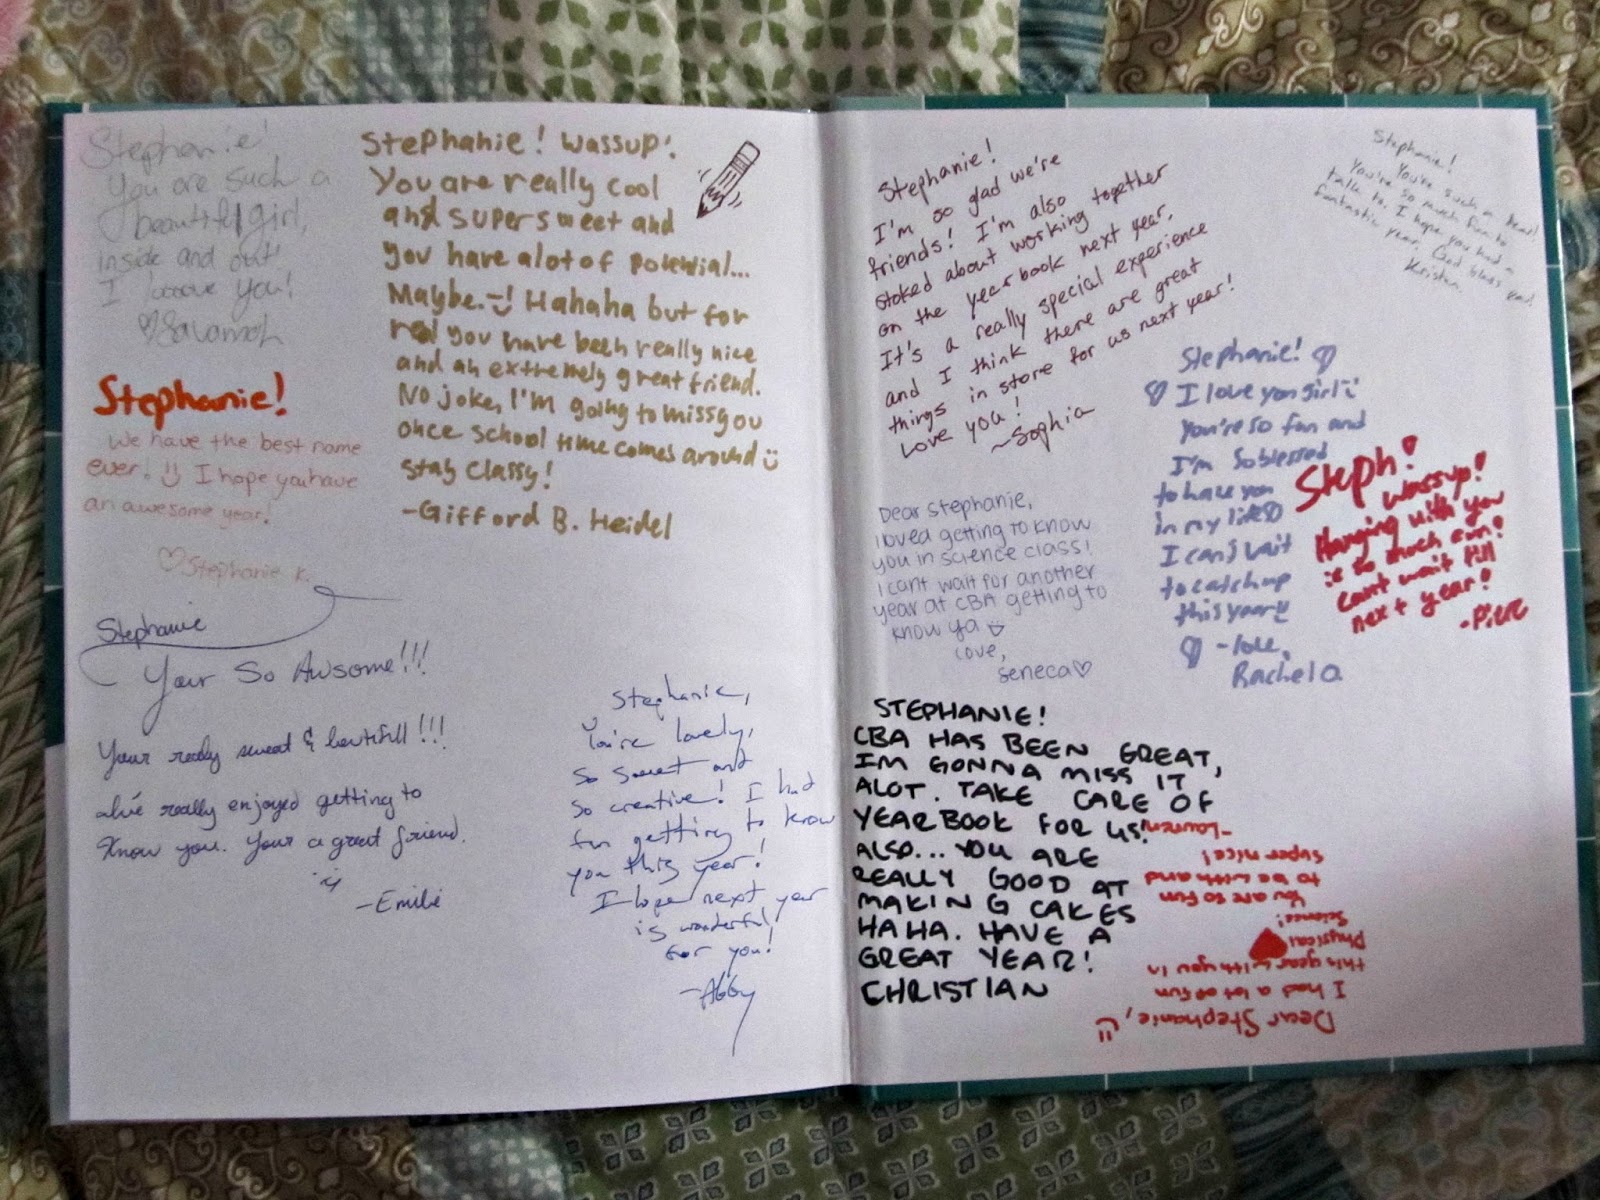 Stephanie!
You are such a
beautiful girl,
inside and out!
I loooove you!
♡Savannah
Stephanie! Wassup!
You are really cool
and super sweet and
you have alot of potential...
Maybe. Hahaha but for
real you have been really nice
and an extremely great friend.
No joke, I'm going to miss you
once school time comes around
Stay classy!
-Gifford B. Heidel
Stephanie!
We have the best name
ever! I hope you have
an awesome year!
♡Stephanie K.
Stephanie
Your So Awsome!!!
Your really sweet & beutifull!!!
really enjoyed getting to
know you. Your a great friend.
-Emilie
Stephanie,
You're lovely,
so sweet and
so creative! I had
fun getting to know
you this year!
I hope next year
is wonderful
for you!
-Abby
Stephanie!
I'm so glad we're
friends! I'm also
stoked about working together
on the yearbook next year.
It's a really special experience
and I think there are great
things in store for us next year!
Love you!
~Sophia
Stephanie!
You're such a dear!
You're so much fun to
talk to. I hope you had a
fantastic year. God bless you!
Kristen.
Stephanie! ♡
♡ I love you girl
You're so fun and
I'm so blessed
to have you
in my life
I can't wait
to catch up
this year
♡ -love,
Rachel a
Steph!
Wassup!
Hanging with you
is so much fun!
Cant wait till
next year!
-Pierc
Dear Stephanie,
i loved getting to know
you in science class!
i cant wait for another
year at CBA getting to
know ya
love,
Seneca♡
STEPHANIE!
CBA HAS BEEN GREAT,
IM GONNA MISS IT
ALOT. TAKE CARE OF
YEARBOOK FOR US!
ALSO... YOU ARE
REALLY GOOD AT
MAKING CAKES
HAHA. HAVE A
GREAT YEAR!
CHRISTIAN
Dear Stephanie,
I had a lot of fun
this year with you in
Physical
Science!
You are so fun
to be with and
super nice!
-Lauren